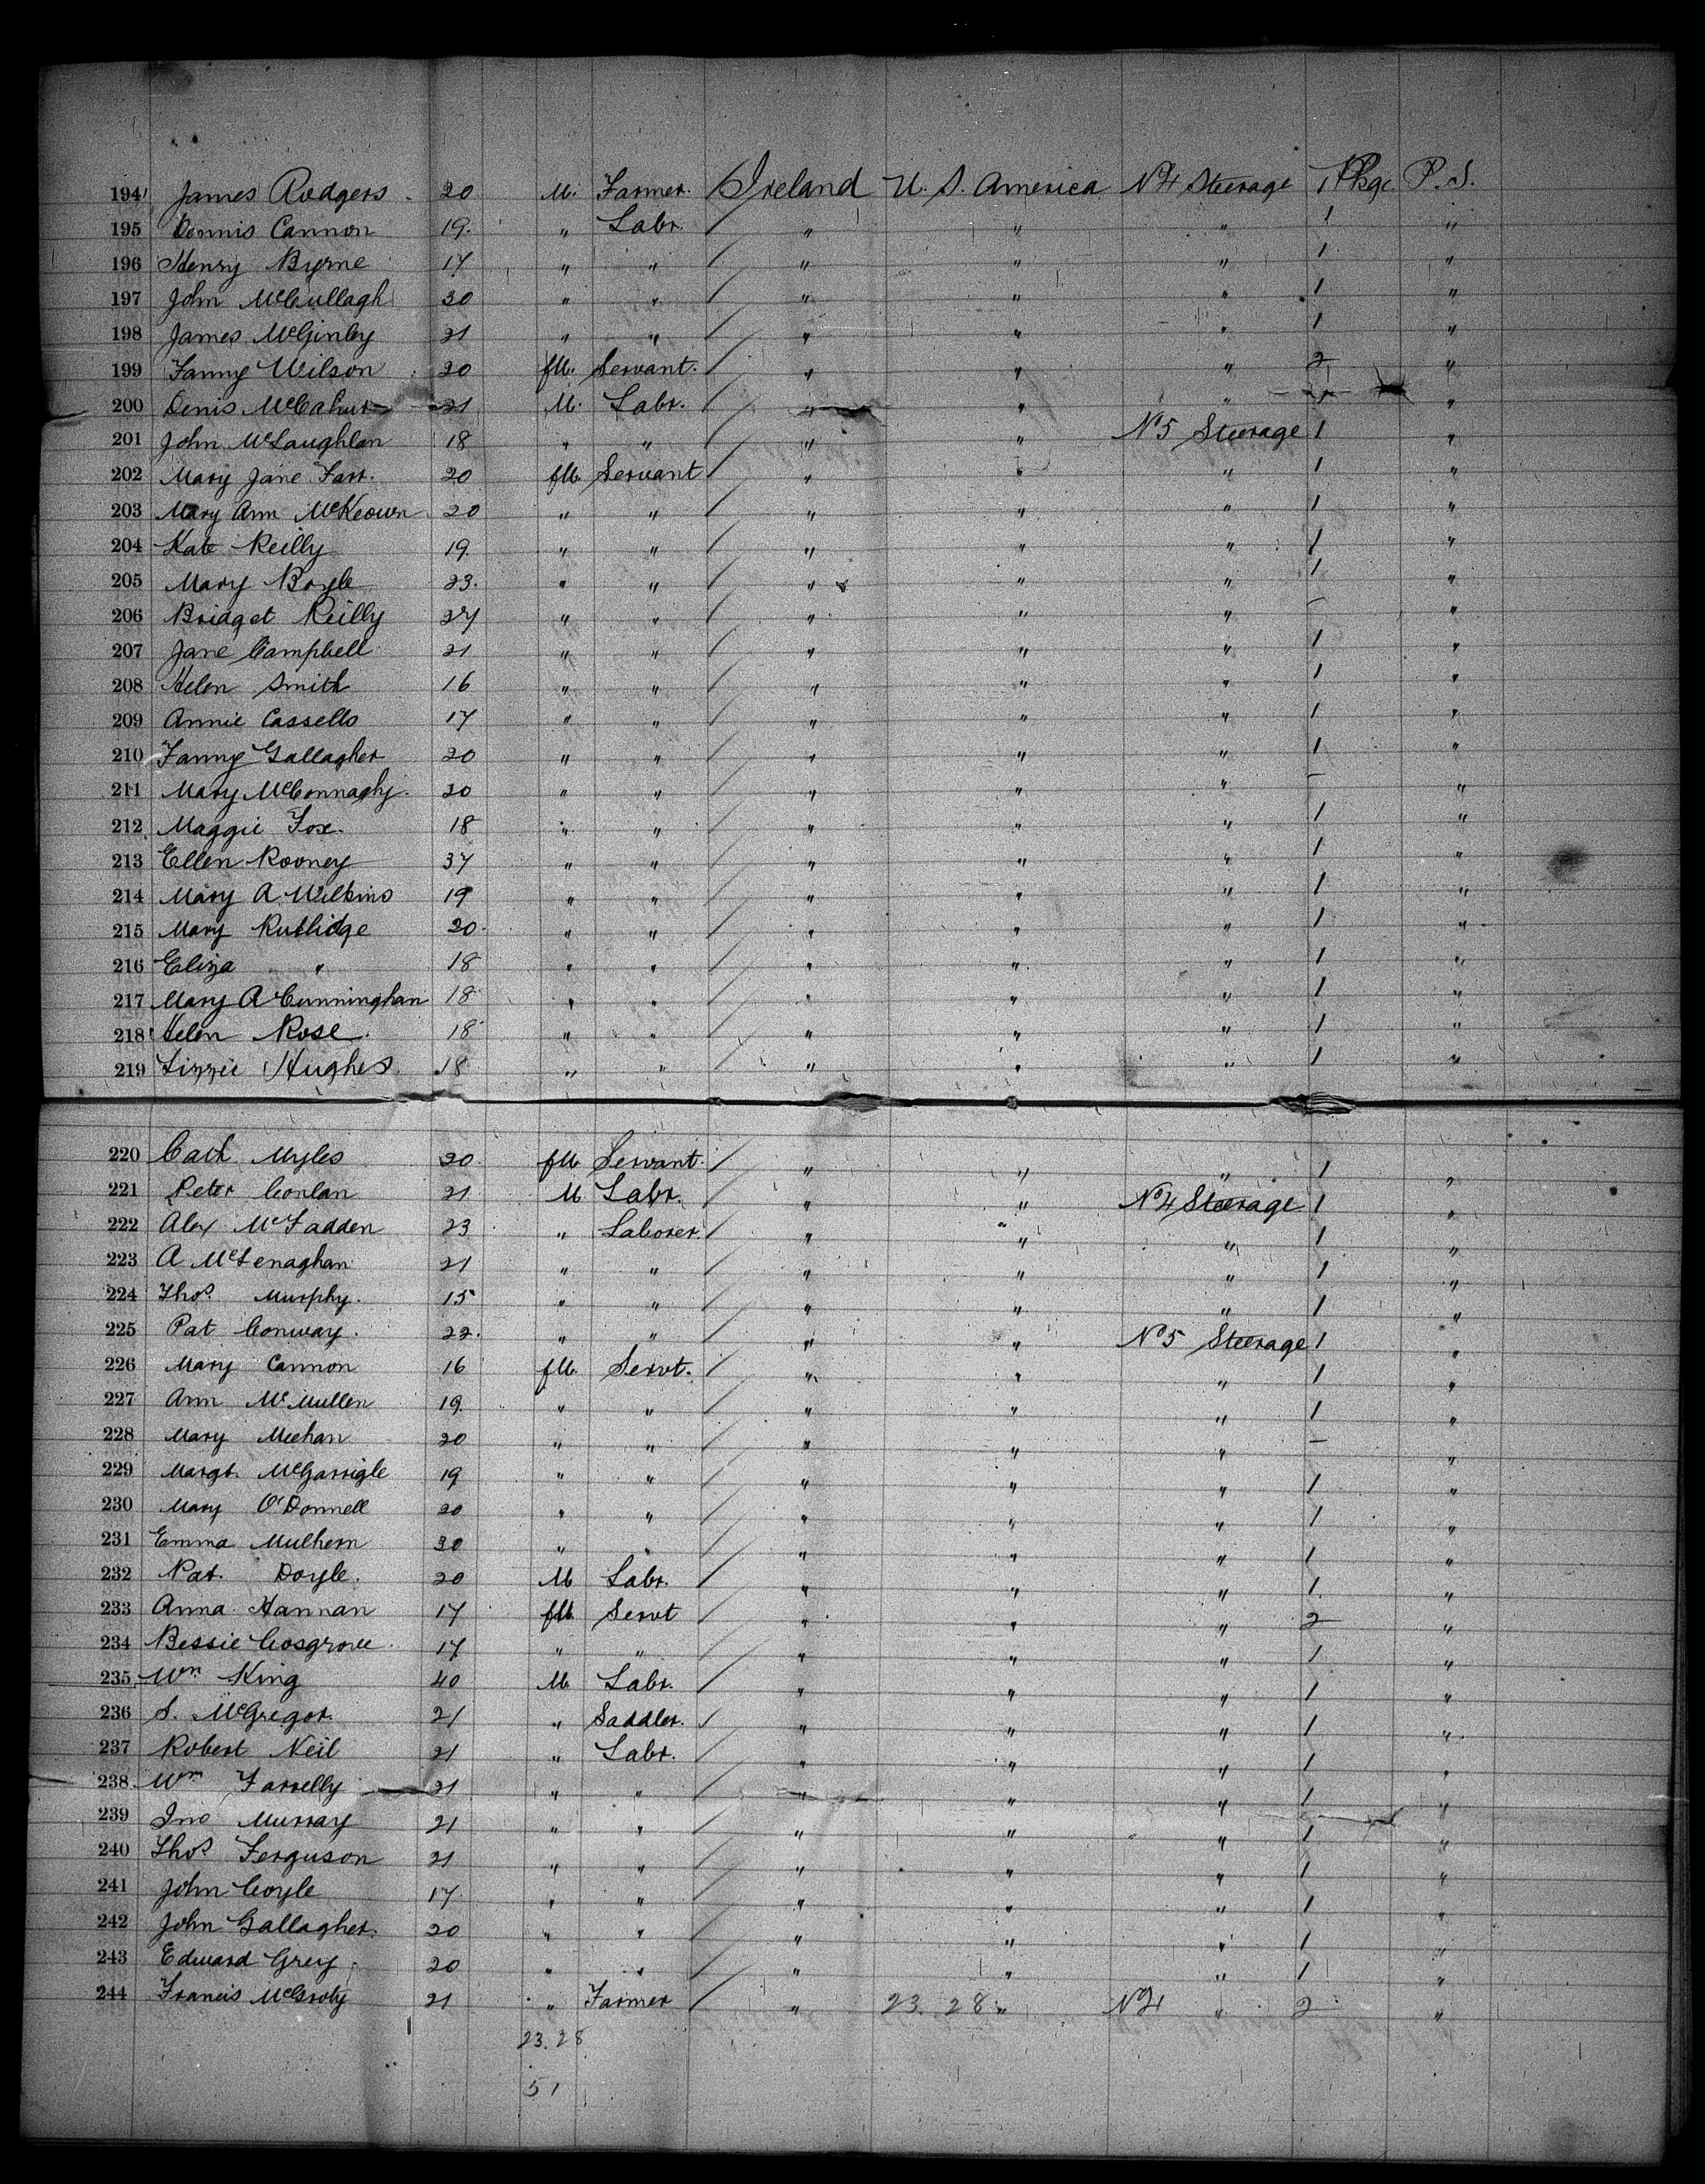 194 James Rodgers 20 M. Farmer. / Ireland U. S. America No 4 Steerage 1 Pkge P. S.
195 Dennis Cannon 19. " Labr. / " " " 1 "
196 Henry Byrne 17 " " / " " " 1 "
197 John McCullagh 30 " " / " " " 1 "
198 James McGinley 21 " " / " " " 1 "
199 Fanny Wilson 20 fM. Servant. / " " " 2 "
200 Denis 21 M. Labr. / " " " "
201 John McLaughlan 18 " " / " " No 5 Steerage 1 "
202 Mary Jane Farr. 20 fM. Servant / " " " 1 "
203 Mary Ann McKeown 20 " " / " " " 1 "
204 Kate Reilly 19. " " / " " " 1 "
205 Mary Boyle 23. " " / " " " 1 "
206 Bridget Reilly 27 " " / " " " - "
207 Jane Campbell 21 " " / " " " 1 "
208 Helen Smith 16 " " / " " " 1 "
209 Annie Cassells 17 " " / " " " 1 "
210 Fanny Gallagher 20 " " / " " " 1 "
211 Mary McConnaghy. 20 " " / " " " - "
212 Maggie Fox. 18 " " / " " " 1 "
213 Ellen Rooney 37 " " / " " " 1 "
214 Mary A Wilkins 19 " " / " " " 1 "
215 Mary Rutlidge 20. " " / " " " 1 "
216 Eliza " 18 " " / " " " 1 "
217 Mary A Cunningham 18 " " / " " " 1 "
218 Helen Rose. 18 " " / " " " 1 "
219 Lizzie Hughes. 18 " " / " " " 1 "
220 Cath Myles 20. fM Servant. / " " " 1 "
221 Peter Conlan 21 M Labr. / " " No 4 Steerage 1 "
222 Alex McFadden 23 " Laborer. / " " " 1 "
223 A McLenaghan 21 " " / " " " 1 "
224 Thos. Murphy. 15 " " / " " " 1 "
225 Pat Conway. 22. " " / " " No 5 Steerage 1 "
226 Mary Cannon 16 fM. Servt. / " " " 1 "
227 Ann McMullen 19. " " / " " " 1 "
228 Mary Meehan 20 " " / " " " - "
229 Margt. McGarrigle 19 " " / " " " 1 "
230 Mary O'Donnell 20 " " / " " " 1 "
231 Emma Mulhern 30 " " / " " " 1 "
232 Pat. Doyle. 20 M Labr. / " " " 1 "
233 Anna Hannan 17 fM Servt / " " " 2 "
234 Bessie Cosgrove. 17 " " / " " " 1 "
235 Wm King 40 M Labr. / " " " 1 "
236 S. McGregor. 21 " Saddler. / " " " 1 "
237 Robert Neil 21 " Labr. / " " " 1 "
238 Wm Farrelly 21 " " / " " " 1 "
239 Jno Murray 21 " " / " " " 1 "
240 Thos. Ferguson 21 " " / " " " 1 "
241 John Coyle 17. " " / " " " 1 "
242 John Gallagher. 20 " " / " " " 1 "
243 Edward Grey. 20 " " / " " " 1 "
244 Francis McGroty 21 " Farmer / " 23. 28 " No 4 " 2 "
23. 28
51